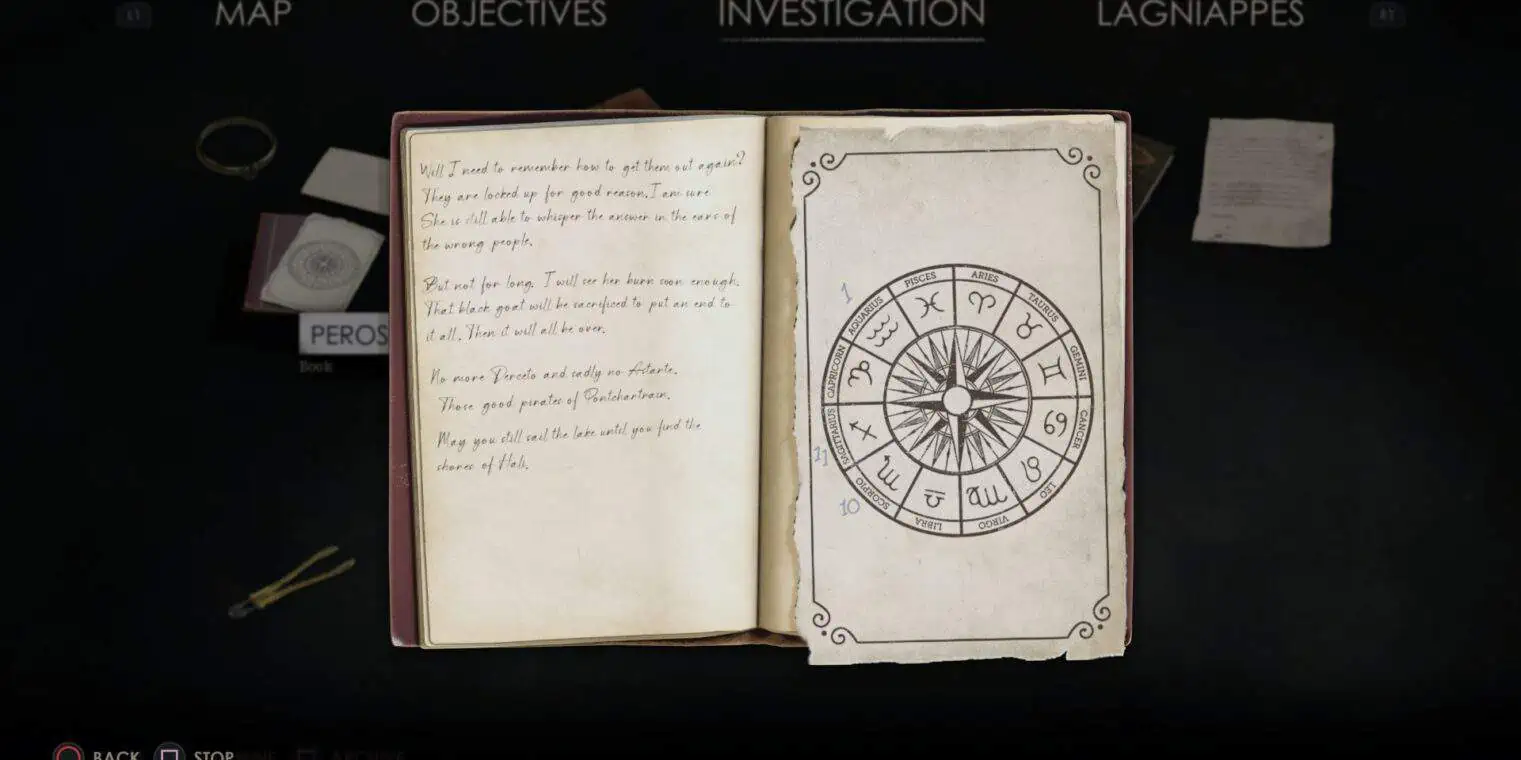 MAP OBJECTIVES INVESTIGATION LAGNIAPPES
Will I need to remember how to get them out again?
They are locked up for good reason. I am sure
She is still able to whisper the answer in the ears of
the wrong people.
But not for long. I will see her burn soon enough.
That black goat will be sacrificed to put an end to
it all. Then it will all be over.
No more Derceto and sadly no Astarte.
Those good pirates of Pontchartrain.
May you still sail the lake until you find the
shores of Hali.
PEROS
Book
1
ARIES
TAURUS
GEMINI
CANCER
LEO
VIRGO
LIBRA
SCORPIO
SAGITTARIUS
CAPRICORN
AQUARIUS
PISCES
11
10
BACK STOP